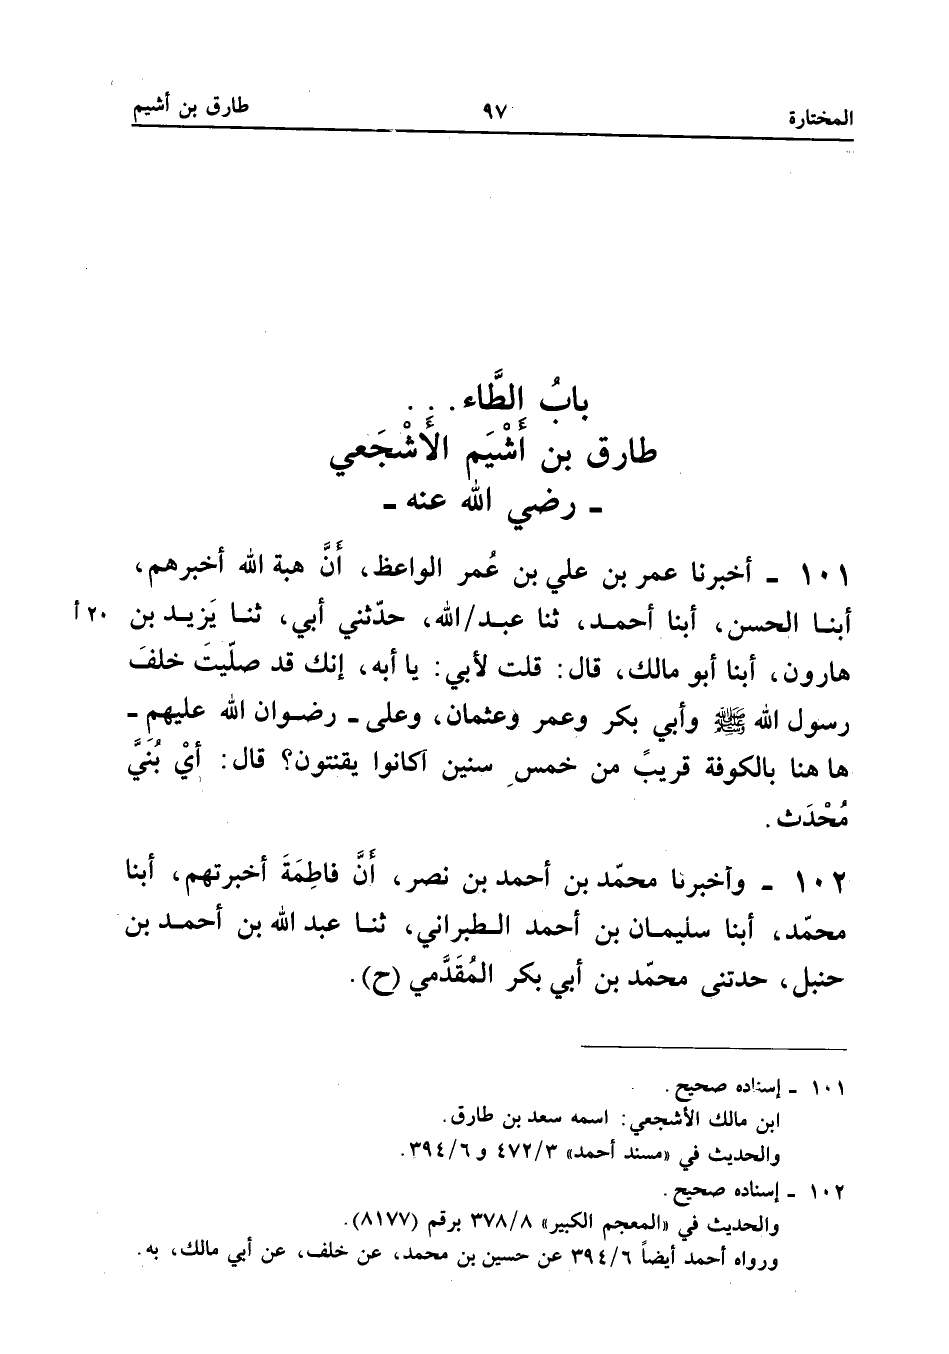 المختارة ٩٧ طارق بن أشيم
بابُ الطَّاء . . .
طارق بن أَشْيَم الأَشْجَعي
ـ رضي الله عنه ـ
١٠١ ـ أخبرنا عمر بن علي بن عُمر الواعظ، أَنَّ هبة الله أخبرهم،
أبنا الحسن، أبنا أحمد، ثنا عبد/الله، حدّثني أبي، ثنا يَزيد بن ٢٠ أ
هارون، أبنا أبو مالك، قال: قلت لأبي: يا أبه، إنك قد صلّيتَ خلفَ
رسول الله ﷺ وأبي بكر وعمر وعثمان، وعلى ـ رضوان الله عليهم ـ
ها هنا بالكوفة قريبً من خمسِ سنين آكانوا يقنتون؟ قال: أيْ بُنَيَّ
مُحْدَث .
١٠٢ ـ وآخبرنا محمّد بن أحمد بن نصر، أَنَّ فاطِمَةَ أخبرتهم، أبنا
محمّد، أبنا سليمان بن أحمد الطبراني، ثنا عبد الله بن أحمد بن
حنبل، حدتنى محمّد بن أبي بكر المُقَدَّمي (ح).
١٠١ ـ إسناده صحيح .
ابن مالك الأشجعي: اسمه سعد بن طارق .
والحديث في «مسند أحمد» ٤٧٢/٣ و ٣٩٤/٦ .
١٠٢ ـ إسناده صحيح .
والحديث في «المعجم الكبير» ٣٧٨/٨ برقم (٨١٧٧).
ورواه أحمد أيضاً ٣٩٤/٦ عن حسين بن محمد، عن خلف، عن أبي مالك، به .